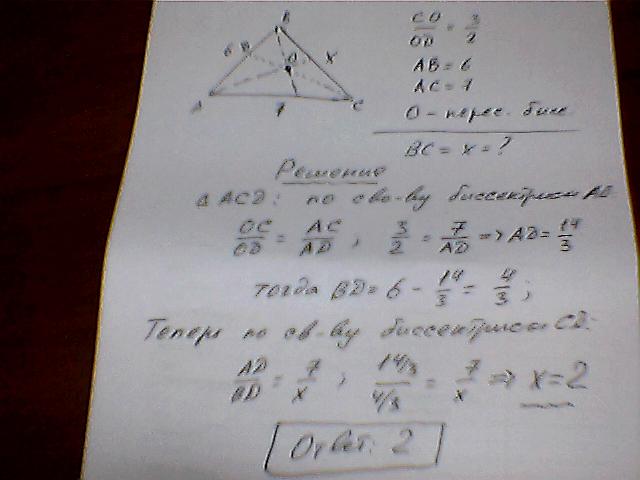 B
CO/OD = 3/2
6 D O X
AB = 6
AC = 7
A 7 C
O - перес. бисс
BC = x = ?
Решение
Δ ACD: по сво-ву биссектрисы AO
OC/OD = AC/AD ; 3/2 = 7/AD => AD = 14/3
тогда BD = 6 - 14/3 = 4/3 ;
Теперь по св-ву биссектрисы CD:
AD/BD = 7/x ; 14/3 / 4/3 = 7/x => x = 2
Ответ: 2